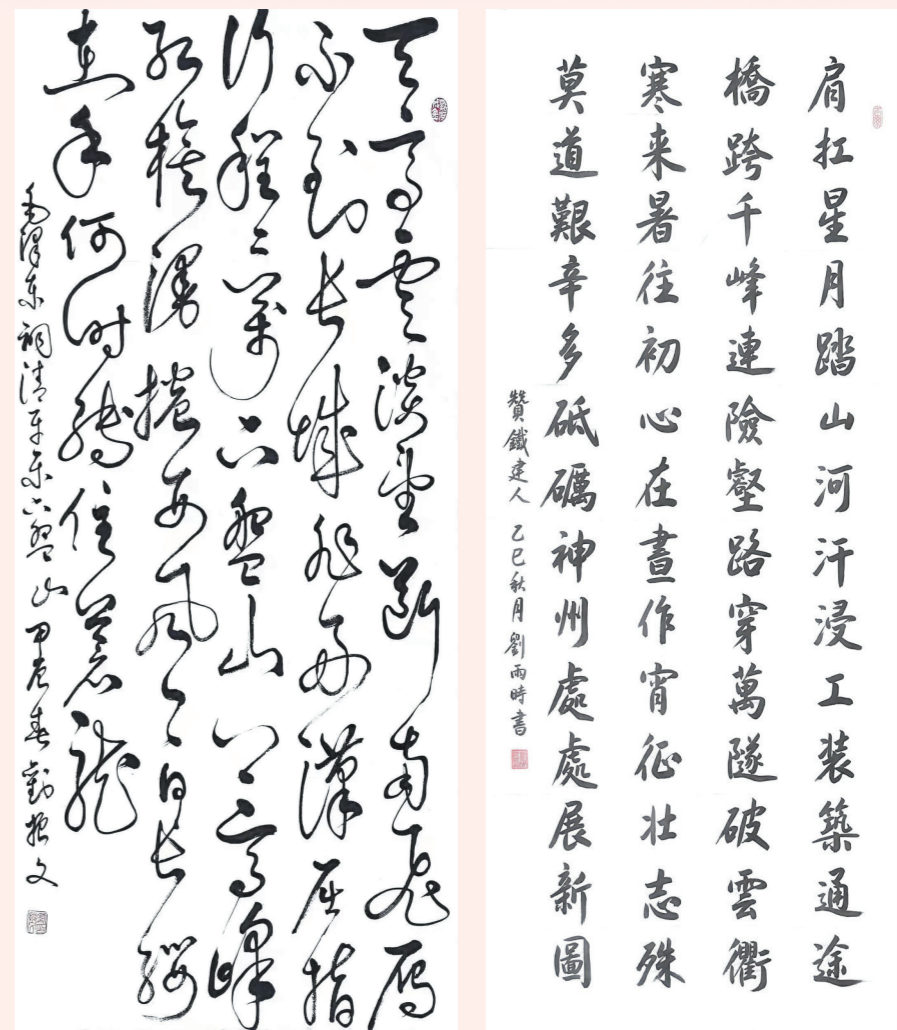 天高云淡望断南飞雁
不到长城非好汉屈指
行程二万六盘山上高峰
红旗漫捲西风今日长缨
在手何时缚住苍龙
毛泽东词清平乐六盘山 甲辰春
肩扛星月踏山河汗浸工装築通途
橋跨千峰連險壑路穿萬隧破雲衢
寒来暑往初心在晝作宵征壮志殊
莫道艱辛多砥礪神州處處展新圖
贊鐵建人 乙巳秋月劉雨時書